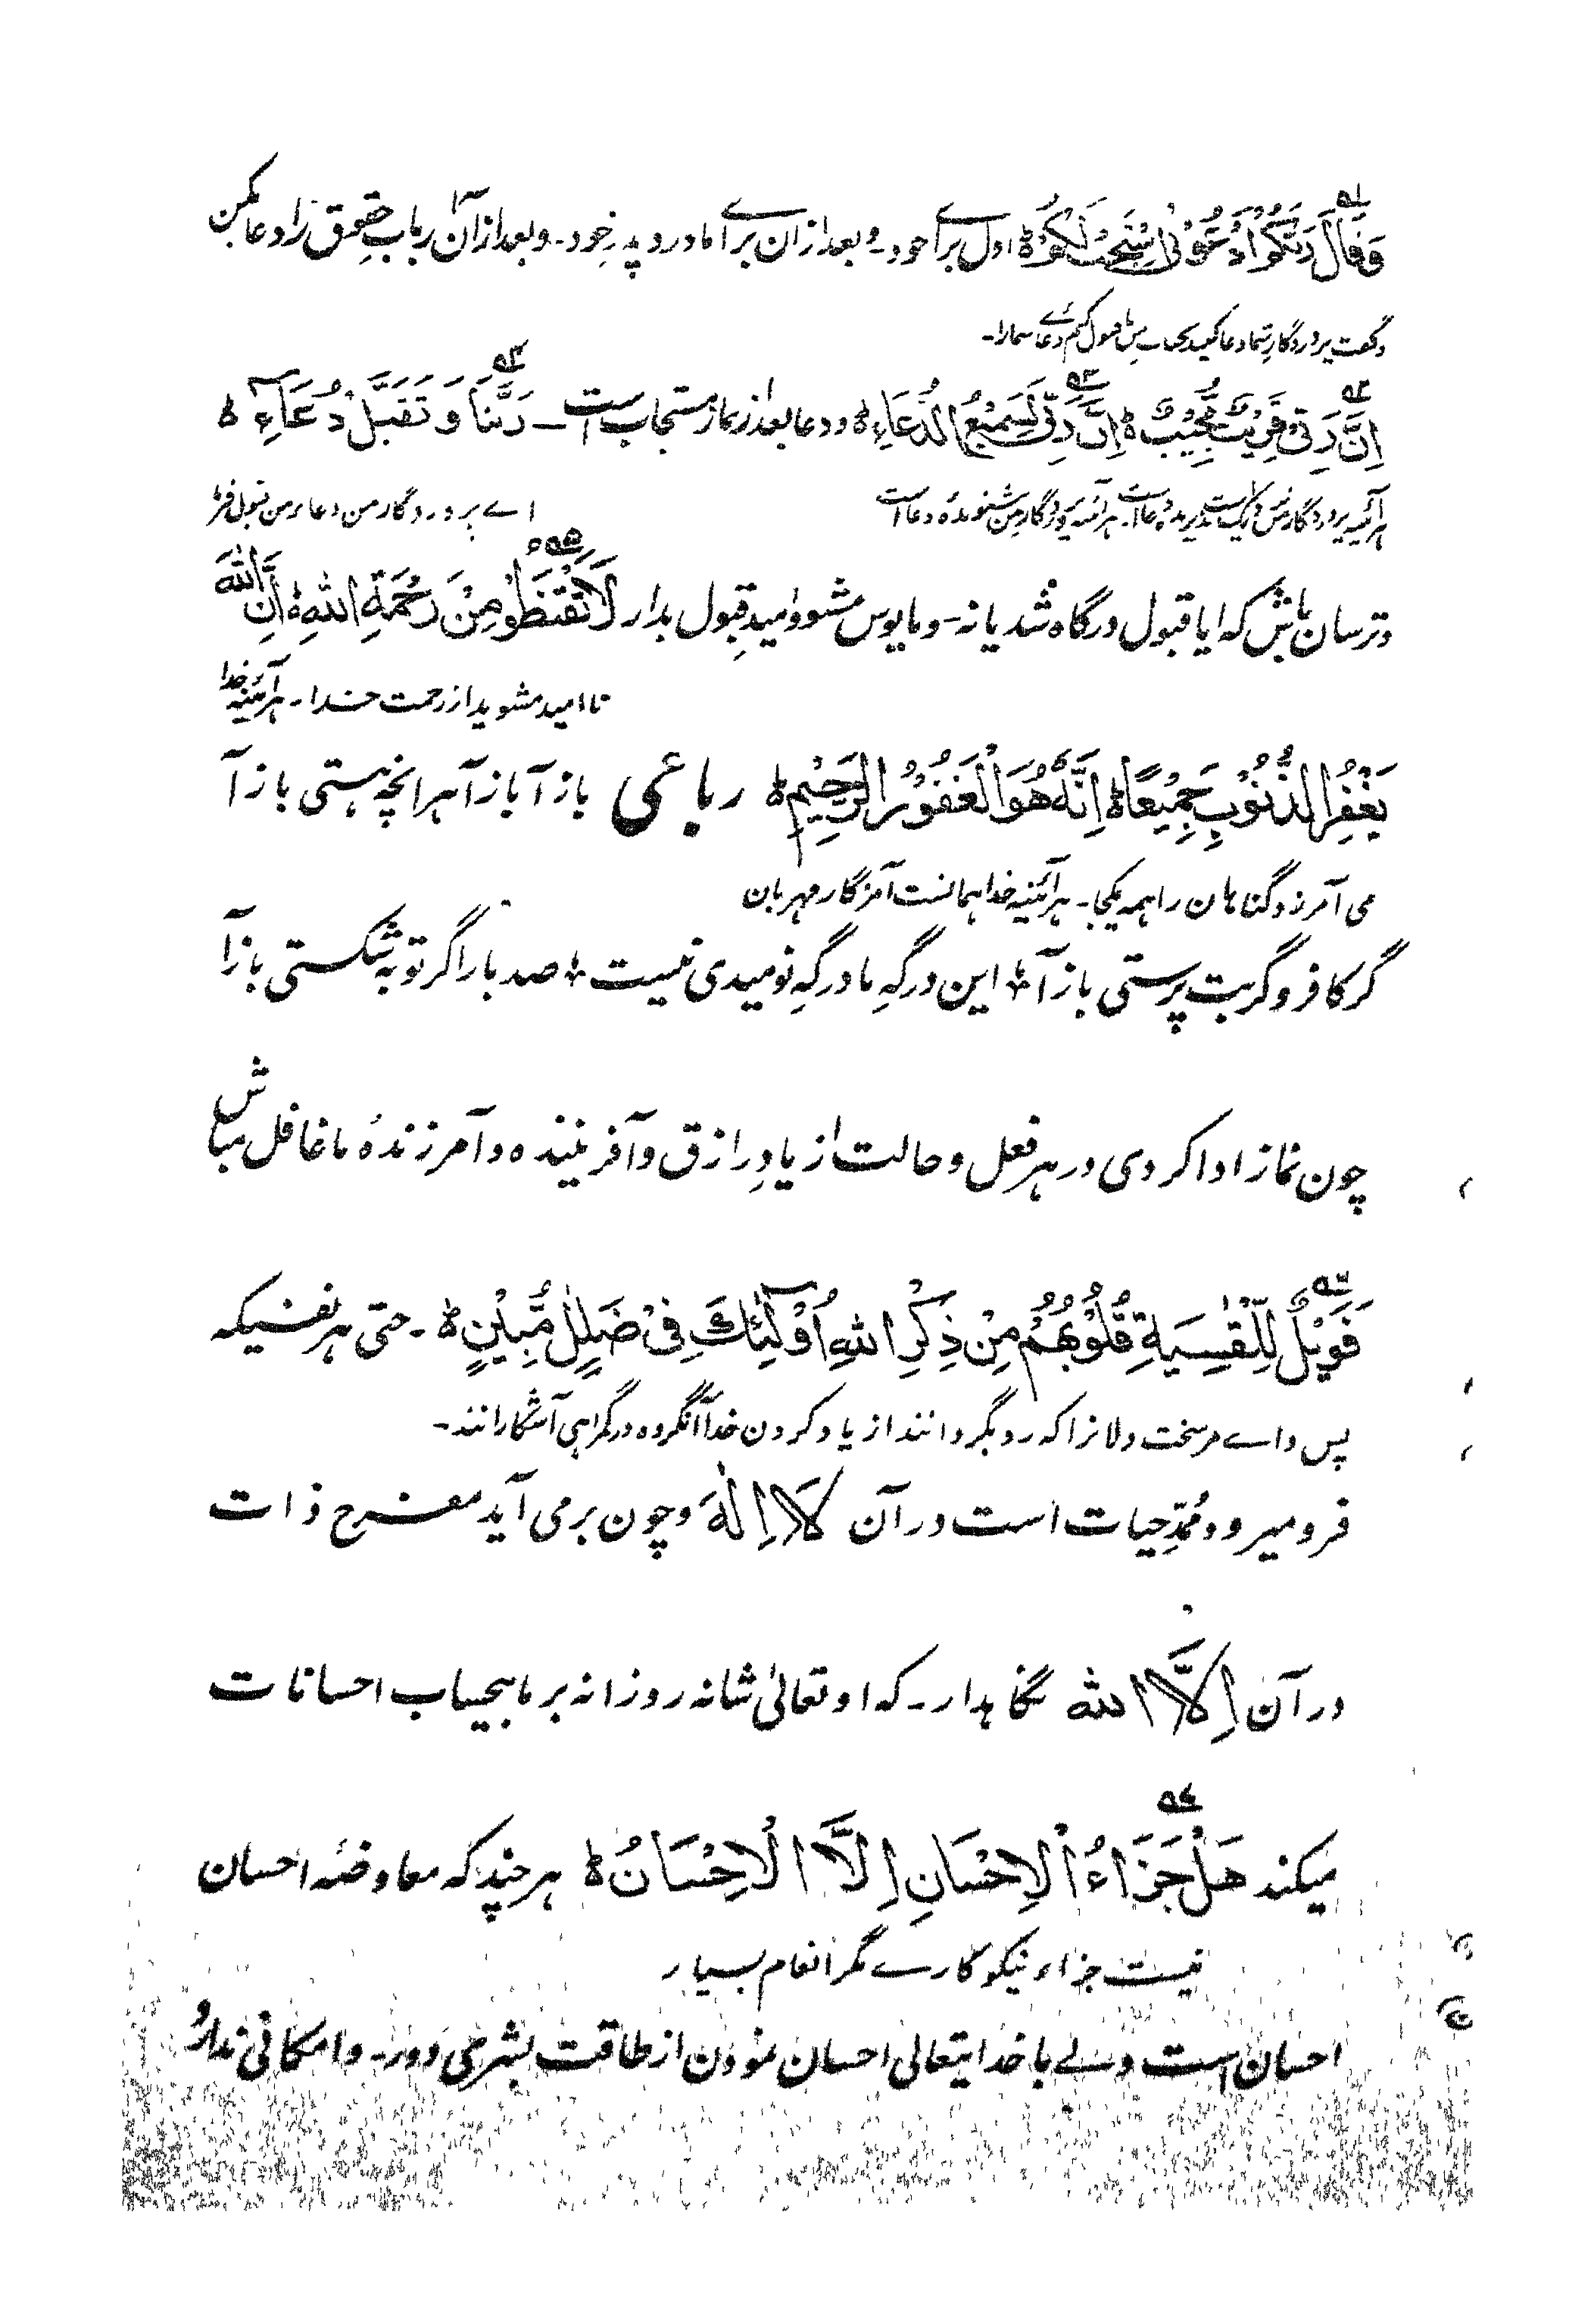 ۵۱
وَقَالَ رَبُّكُمُ ادْعُوْنِیْ اَسْتَجِبْ لَكُمْ ؕ اول برائے خود۔ و بعد ازان برائے مادر و پدرِ خود۔ و بعد ازان اربابِ حقوق را دعا بکن
و گفت پروردگارِ شما دعا کنید بجنابِ من تا قبول کنم دعائے شمارا۔
۵۲ ۵۳ ۵۴
اِنَّ رَبِّیْ قَرِیْبٌ مُّجِیْبٌ ؕ اِنَّ رَبِّیْ لَسَمِیْعُ الدُّعَآءِ ؕ و دعا بعد از نماز مستجاب است ــ رَبَّنَا وَ تَقَبَّلْ دُعَآءِ ؕ
ہرآئینہ پروردگار من نزدیک است پذیرندہ دعا است۔ ہرآئینہ پروردگار من شنوندہ دعا است
اے پروردگار من دعاء من قبول فرما
۵۵
و ترسان باش کہ ایا قبول درگاہ شد یا نہ۔ و مایوس مشو و امیدِ قبول بدار لَا تَقْنَطُوْا مِنْ رَحْمَةِ اللهِ ؕ اِنَّ اللهَ
نا امید مشوید از رحمت خدا۔ ہرآئینہ خدا
یَغْفِرُ الذُّنُوْبَ جَمِیْعًا ؕ اِنَّهٗ هُوَ الْغَفُوْرُ الرَّحِیْمِ ؕ رباعی باز آ باز آ ہر انچہ ہستی باز آ
می آمرزد گناہان را ہمہ یکجا۔ ہرآئینہ خدا ہمانست آمرزگار مہربان
گر کافر و گر بت پرستی باز آ ؕ این درگہِ ما درگہِ نومیدی نیست ؕ صد بار اگر توبہ شکستی باز آ
چون نماز ادا کردی در ہر فعل و حالت از یادِ رازق و آفرینندہ و آمرزندہُ ما غافل مباش
۵۶
فَوَیْلٌ لِّلْقٰسِیَةِ قُلُوْبُهُمْ مِنْ ذِكْرِ اللهِ اُوْلٰٓئِكَ فِیْ ضَلٰلٍ مُّبِیْنٍ ؕ ۔ حتی ہر نفسیکہ
پس واے مر سخت دلانرا کہ رو بگردانند از یاد کردن خدا آنگروہ در گمراہی آشکارانند۔
فرو میرود مُمّدِ حیات است در آن لَا اِلٰهَ و چون بر می آید مفرح ذات
در آن اِلَّا الله نگاہدار۔ کہ او تعالیٰ شانہ روزانہ بر ما بیحساب احسانات
۵۷
میکند هَلْ جَزَآءُ الْاِحْسَانِ اِلَّا الْاِحْسَانُ ؕ ہر چند کہ معاوضہ احسان
نیست جزاء نیکو کارے مگر انعام بسیار
احسان است ولے با خدایتعالی احسان نمودن از طاقت بشری دور۔ و امکانی ندارد